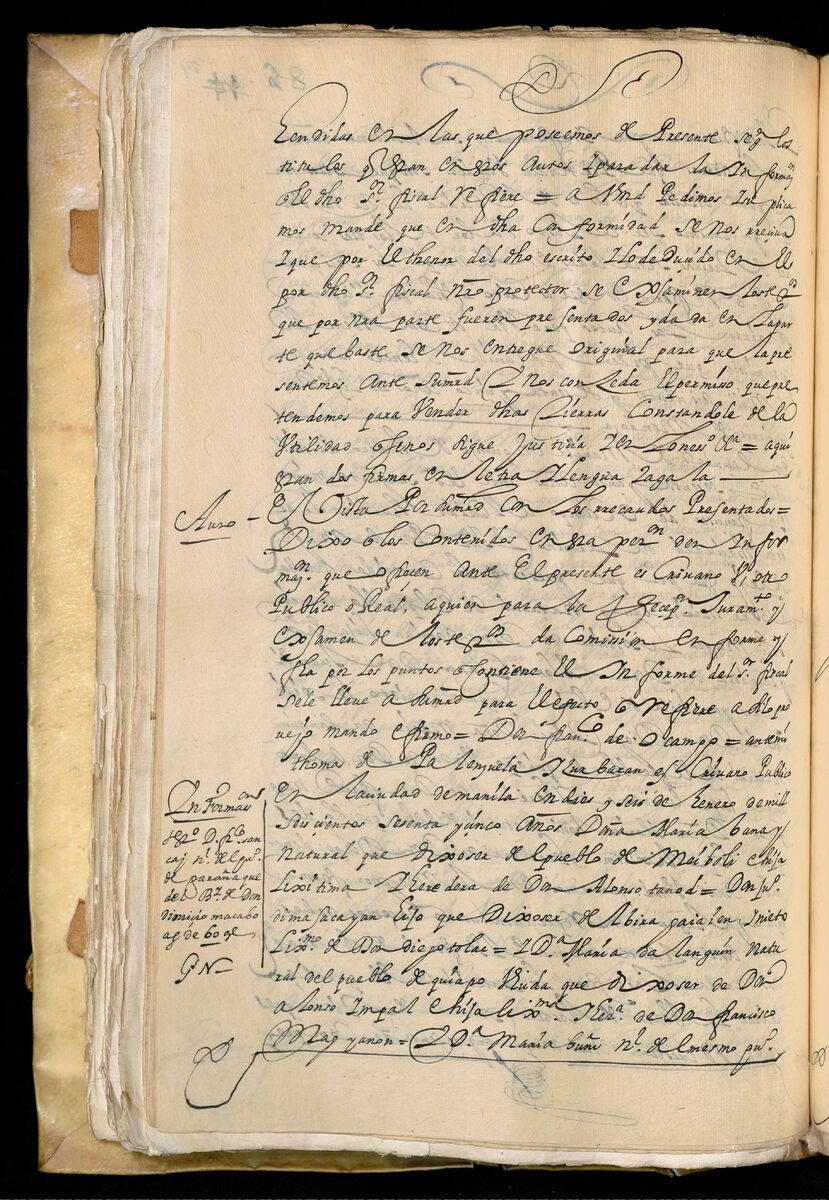 tendidas en las que poseemos de Presente seg.n los
titulos q̃ estan en estos Autos I para dar la Informaz.on
q̃ el dho s.or fiscal refiere = a Vmd Pedimos I suplica
mos mande que en dha Conformidad se nos rreciua
I que por El thenor del dho escrito I lo deduçido en El
por dho s.or fiscal nr̃o protector se Exsaminen los test.os
que por nr̃a parte fueren presentados y dada en la par
te que baste se nos entregue original para que la pre
sentemos Ante su mrd I nos conzeda El permisso que pre
tendemos para Vender dhas tierras Constandole de la
Vtilidad q̃ se nos sigue Justizia I en lo neses.o &a = aqui
estan dos firmas en letra I lengua tagala
Auto
Vista Por su mrd Con los rrecaudos Presentados =
Dixo q̃ los Contenidos en esta pet.on den Infor
maz.n que ofrecen Ante El presente escriuano V, otro
Publico o Real, a quien para la Recep.n Juram.to y
Exsamen de los test.os da Comission en forma y
fha por los puntos q̃ contiene El Informe del s.r fiscal
se le lleue a su mrd para El efecto q̃ refiere asi lo pro
ueyo mando e firmo = Don fran.co de ocampo = ante mi
thomas de Palenzuela I Zurbaran esCriuano Publico
Informaz.on
test.o D. fr.co san
caj n.l del pu.o
de parañaque
del B.o de Don
dionicio macabo
ag de 60 a.s
En la ciudad de manila En dies y seis de henero de mill
seiscientos sesenta y cinco Años Doña Maria banay
Natural que dixo ser del pueblo de Meiboli e hija
Lixitima I heredera de Don Alonso tanod = Don Ju.o
dimasacayan hijo que Dixo ser de Abira gaia I en, I nieto
Lix.mo de Don diego tolac = I D.a Maria dalanguin Natu
ral del pueblo de quiapo Viuda que dixo ser de Don
alonso Impal e hija lix.ma I her.a de Don francisco
Mag yanon = I D.a Maria buñi N.l del mesmo pu.o